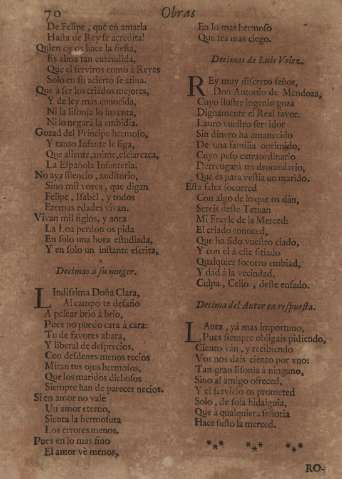 70
Obras
De Felipe, que en amarla
Hasta de Rey se acredita!
Quien oy os hace la fiesta,
Es alma tan entendida,
Que el serviros como à Reyes
Solo en su acierto se atina.
Que à ser los criados mejores,
Y de ley mas conocida,
Ni la lisonja lo inventa,
Ni lo negarà la embidia.
Gozad del Principe hermoso,
Y tanto Infante le siga,
Que aliente, anime, esclarezca,
La Española Infanteria.
No aya silencio, auditorio,
Sino mil voces, que digan
Felipe, Isabel, y todos
Eternas edades vivan.
Vivan mil siglos, y aora
La Loa perdon os pida
En solo una hora estudiada,
Y en solo un instante escrita,
Decimas à su muger.
Lindissima Doña Clara,
Al campo te desafio
A pelear brio à brio,
Pues no puedo cara à cara:
Tu de favores abara,
Y liberal de desprecios,
Con desdenes menos recios
Miran tus ojos hermosos,
Que los maridos dichosos
Siempre han de parecer necios.
Si en amor no vale
Un amor eterno,
Sienta la hermosura
Los errores menos.
Pues en lo mas fino
El amor ve menos,
En lo mas hermoso
Que sea mas ciego.
Decimas de Luis Velez.
Rey muy discreto señor,
Don Antonio de Mendoza,
Cuyo ilustre ingenio goza
Dignamente el Real favor.
Lauro vuestro servidor
Sin dinero ha amanecido
De una familia oprimido,
Cuyo peso extraordinario
Derrengarà un dromedario,
Que es para vestia un marido.
Esta falta socorred
Con algo de lo que os dàn,
Sereis desse Tetuan
Mi Frayle de la Merced:
El criado conoced,
Que ha sido vuestro criado,
Y con el à este fiado
Qualquier socorro embiad,
Y dad à la vecindad.
Culpa, Celio, deste enfado.
Decima del Autor en respuesta.
Laura, ya mas importuno,
Pues siempre obligais pidiendo,
Ciento vàn, y recibiendo
Vos nos dais ciento por uno:
Tan gran lisonja à ninguno,
Sino al amigo ofreced,
Y el servicio os prometed
Solo, de sola hidalguia,
Que à qualquiera señoria
Hace susto la merced.
*** *** ***
RO-